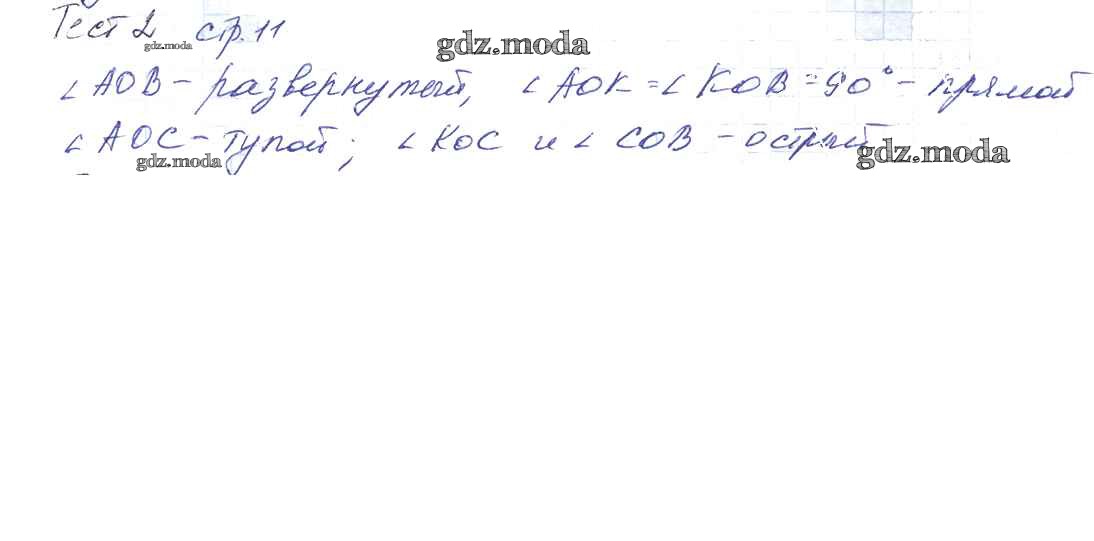 Тест 2 стр. 11
gdz.moda gdz.moda
∠ AOB - развернутый, ∠ AOK = ∠ KOB = 90° - прямой
∠ AOC - тупой; ∠ KOC и ∠ COB - острый
gdz.moda gdz.moda